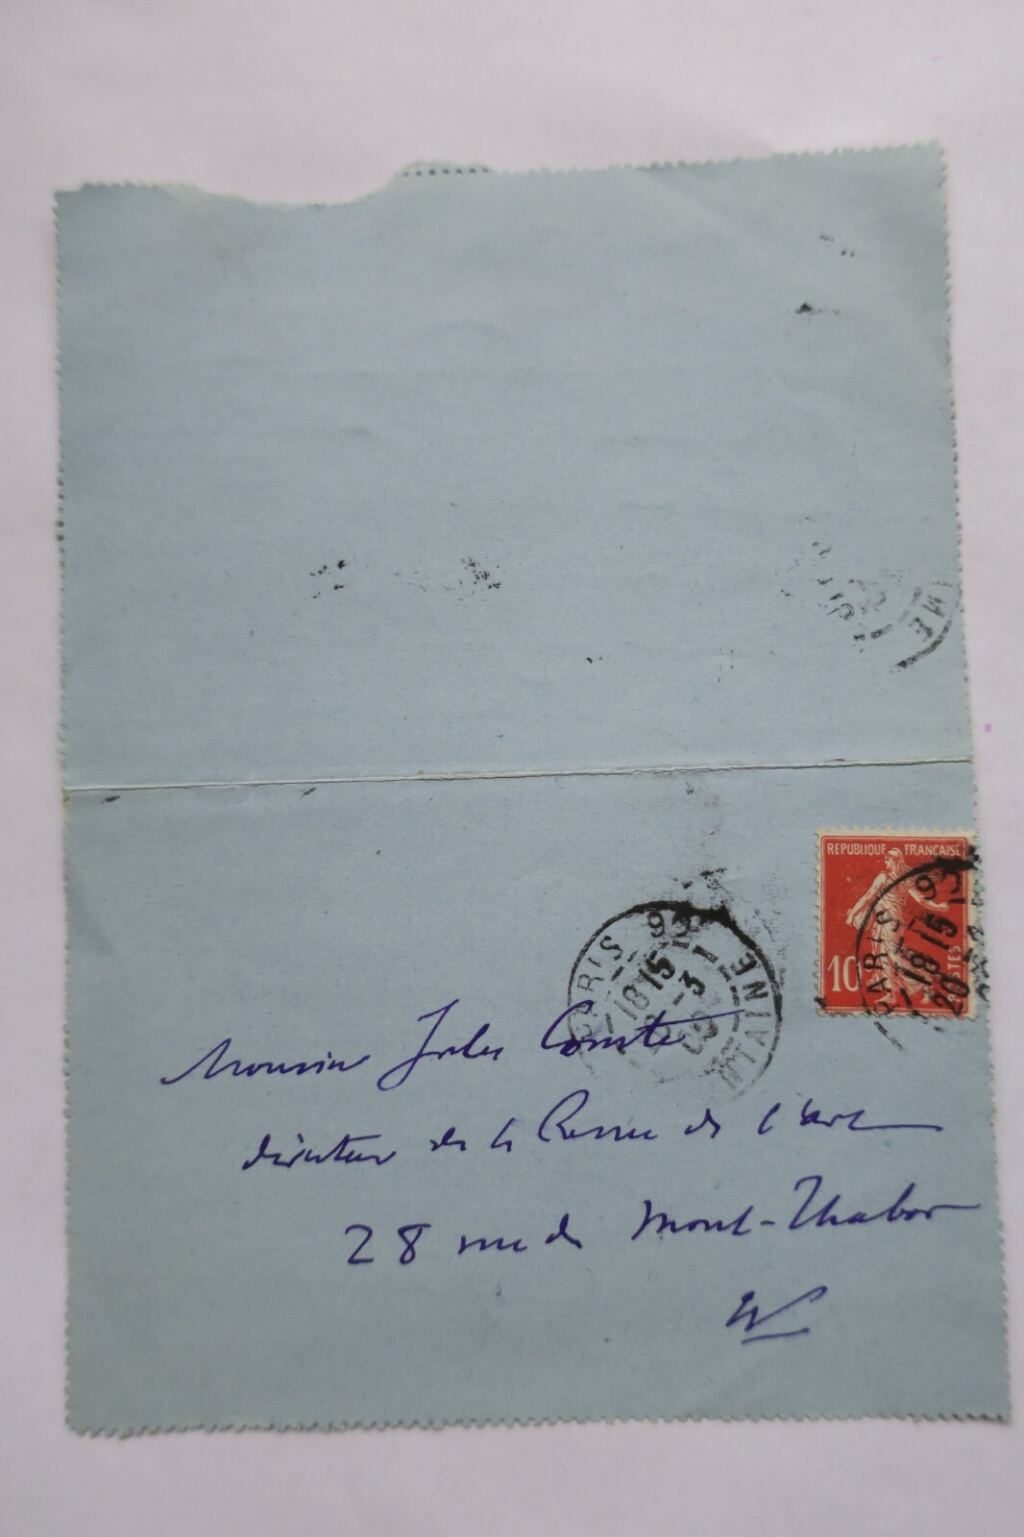 ME
REPUBLIQUE FRANÇAISE
10
POSTES
PARIS 93
18 15
20
PARIS 93
18 15
-3
09
Monsieur Jules Comte
directeur de la Revue de l'art
28 rue du Mont-Thabor